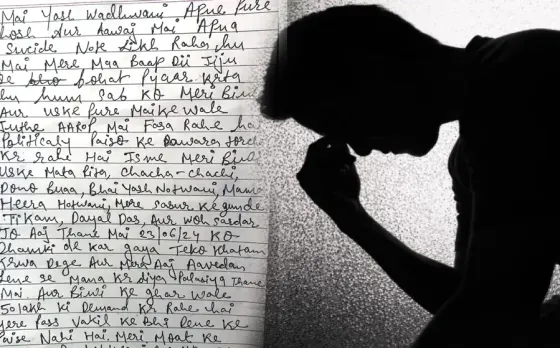 Mai Yosh Wadhwani Apne Pure
Hosh Aur Aawaj Mai Apna
Sucide Note Likh Raha hu
Mai Mere Maa Baap Dii Jiju
Se bohat Pyaar Krta
hu hum sab KO Meri Biwi
Aur USKe Pure Maike Wale
Juthe AAROP Mai Fasa Rahe hai
Politicaly Paiso Ke Dawara
Kr rahe Hai Isme Meri Biwi
USKe Mata Pita, Chacha-chachi,
Dono Buaa, Bhai Yosh Notwani, Mama
Heera Hotwani, Mere Sasur Ke gunde
Tikam, Dayal Das, Aur Woh Sardar
JO Aaj Thane Mai 23/06/24 KO
Dhamki de Kar gaya Teko Khatam
Krwa Dege Aur Mera Aaj Aavedan
Lene Se Mana Kr diya Palasiya Thane
Mai Aur Biwi Ke ghar Wale
50 lakh Ki Demand Kr Rahe hai
Mere Pass Vakil Ke Bhi Dene Ke
Paise Nahi Hai. Meri Moat Ke